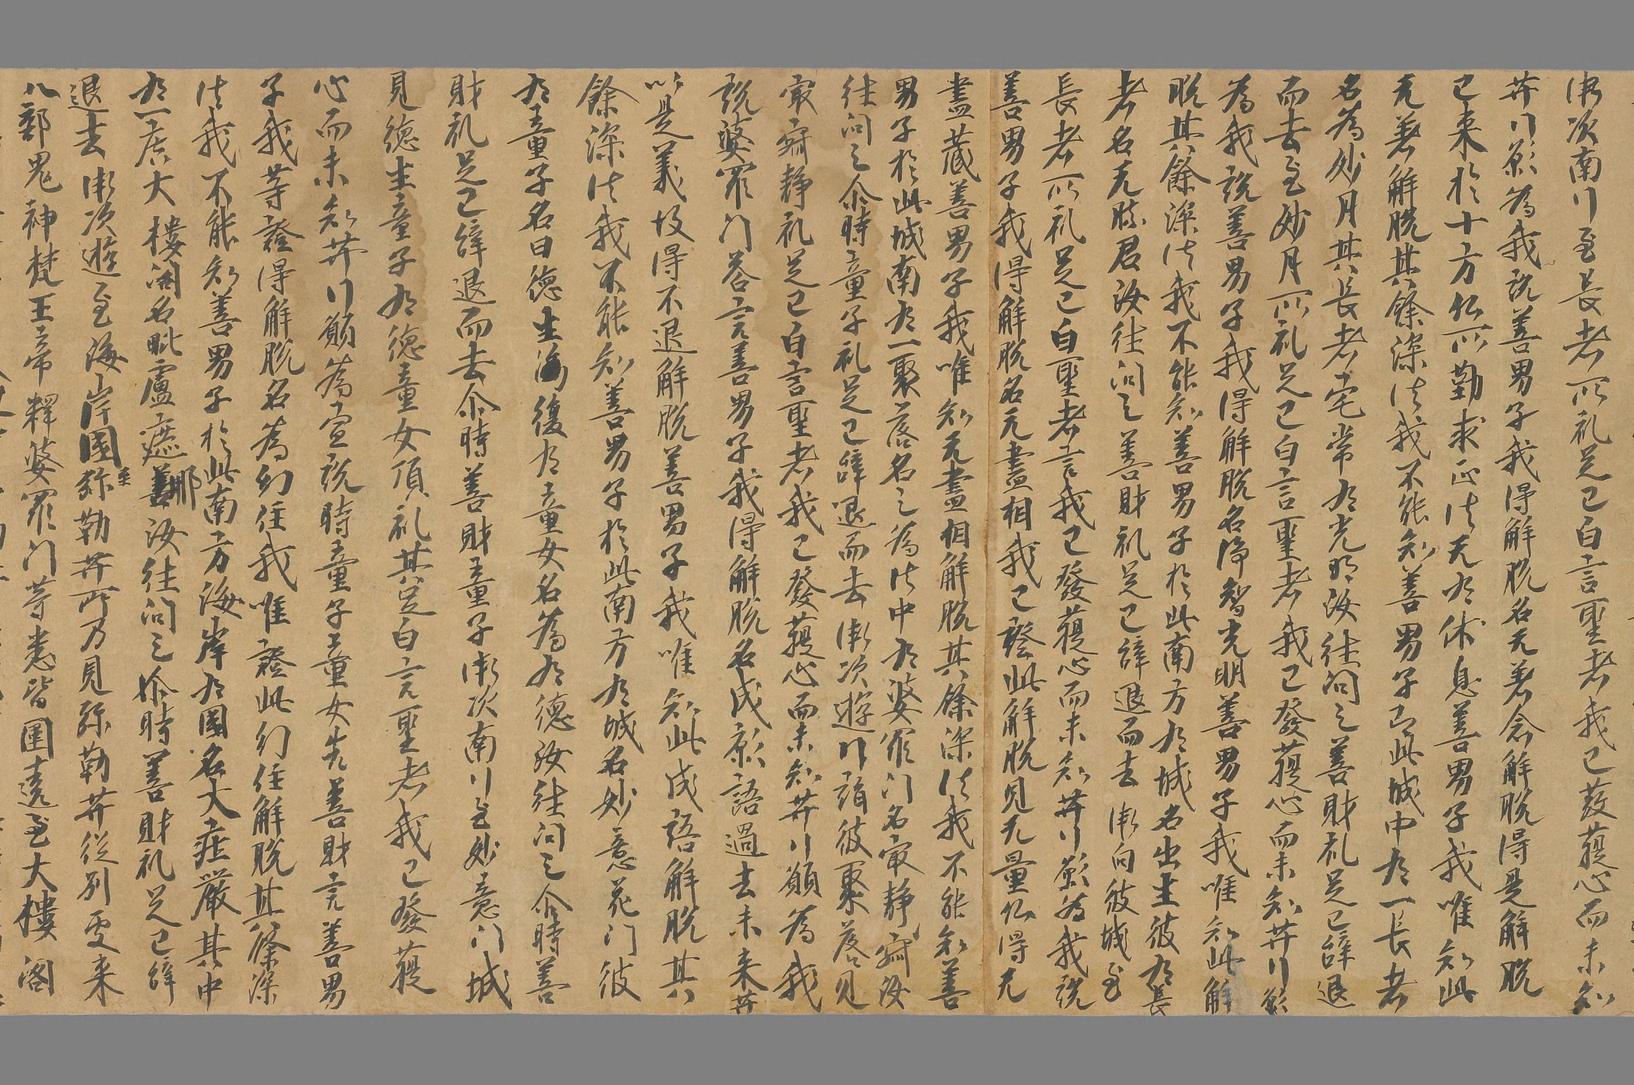 漸次南行至長者所礼足已白言聖者我已發菩提心而未知
菩薩行願為我說善男子我得解脫名无著念解脫得是解脫
已来於十方仏所勤求正法无有休息善男子我唯知此
无著解脫其餘深法我不能知善男子即此城中有一長者
名為妙月其長者宅常有光明汝往问之善財礼足已辞退
而去至妙月所礼足已白言聖者我已發菩提心而未知菩薩行願
為我說善男子我得解脫名淨智光明善男子我唯知此解
脫其餘深法我不能知善男子於此南方有城名出生彼有長
者名无勝君汝往问之善財礼足已辞退而去漸向彼城至
長者所礼足已白聖者言我已發菩提心而未知菩薩行願為我說
善男子我得解脫名无盡相我已證此解脫見无量仏得无
盡藏善男子我唯知无盡相解脫其餘深法我不能知善
男子於此城南有一聚落名之為法中有婆罗门名寂静汝
往问之尒時童子礼足已辞退而去漸次遊行詣彼聚落見
寂静礼足已白言聖者我已發菩提心而未知菩薩行願為我
說婆罗门答言善男子我得解脫名成願語過去未来菩薩
以是義故得不退解脫善男子我唯知此成語解脫其
餘深法我不能知善男子於此南方有城名妙意花门彼
有童子名曰德生復有童女名為有德汝往问之尒時善
財礼足已辞退而去尒時善財童子漸次南行至妙意门城
見德生童子有德童女頂礼其足白言聖者我已發菩提
心而未知菩薩行願為宣說時童子童女告善財言善男
子我等證得解脫名為幻住我唯證此幻住解脫其餘深
法我不能知善男子於此南方海岸有國名大莊嚴其中
有一广大樓阁名毗盧遮那汝往问之尒時善財礼足已辞
退去漸次遊至海岸國至弥勒菩薩所乃見弥勒菩薩從別處来
八部鬼神梵王帝釋婆罗门等悉皆圍遶至大樓阁